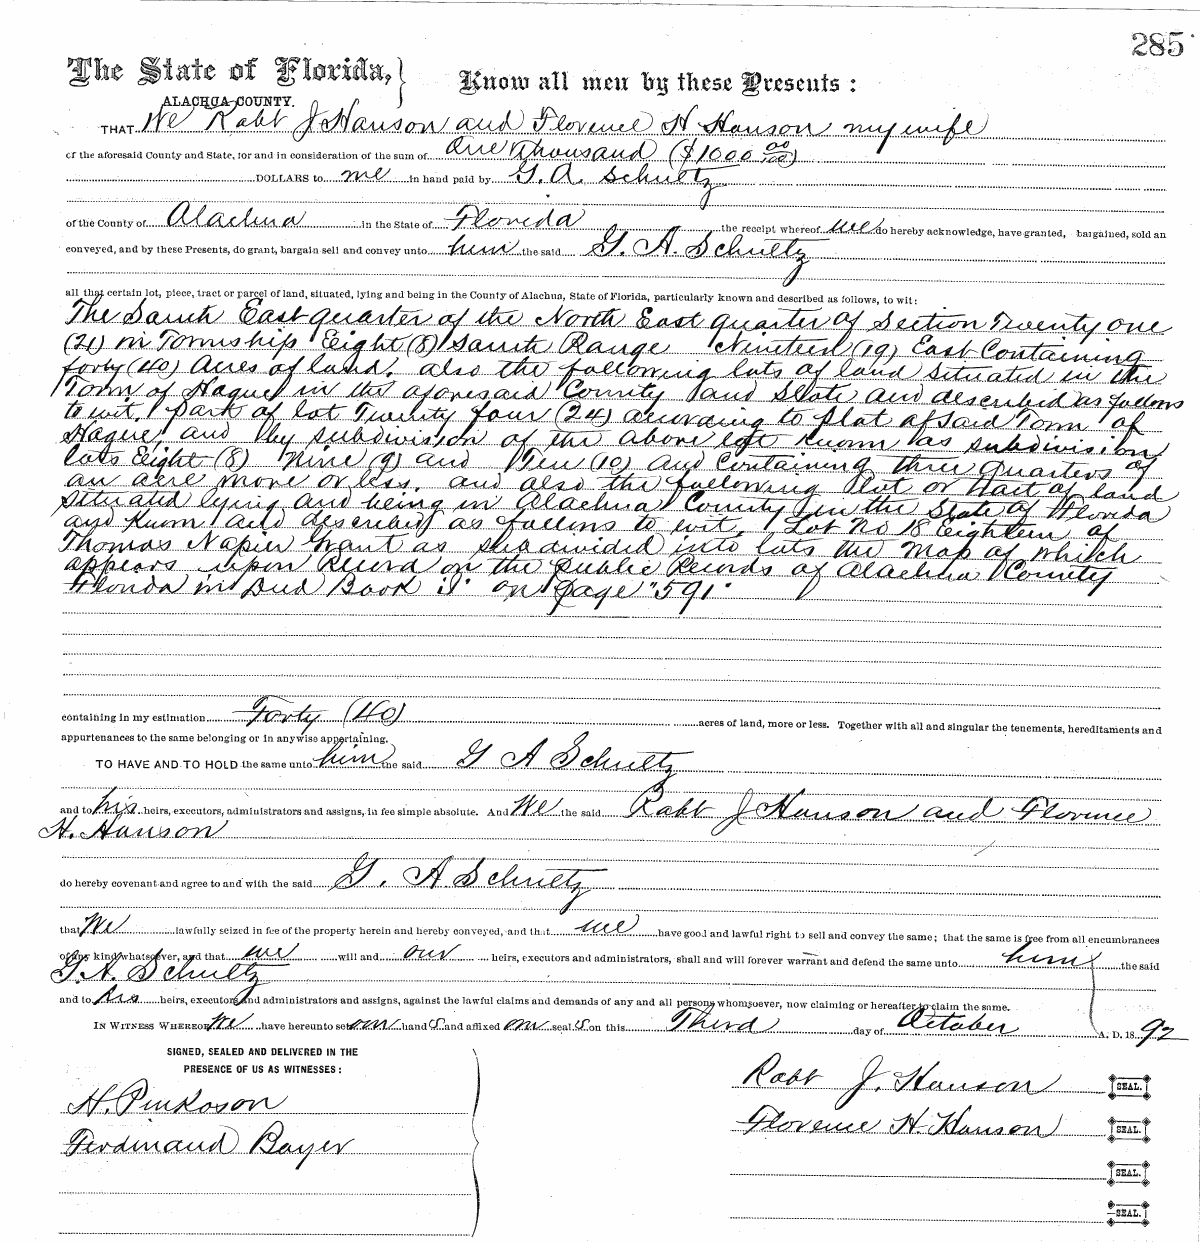 285
The State of Florida,
Know all men by these Presents:
ALACHUA COUNTY.
THAT We Robt J Hanson and Florence H Hanson my wife
of the aforesaid County and State, for and in consideration of the sum of One thousand ($1000 00/100)
DOLLARS to me in hand paid by G. A. Schultz
of the County of Alachua in the State of Florida the receipt whereof we do hereby acknowledge, have granted, bargained, sold an
conveyed, and by these Presents, do grant, bargain sell and convey unto him the said G. A. Schultz
all that certain lot, piece, tract or parcel of land, situated, lying and being in the County of Alachua, State of Florida, particularly known and described as follows, to wit:
The South East quarter of the North East quarter of Section Twenty one
(21) in Township Eight (8) South Range Nineteen (19) East Containing
forty (40) Acres of land. also the following lots of land situated in the
Town of Hague in the aforesaid County and State and described as follows
to wit. Part of lot Twenty four (24) according to plat of Said Town of
Hague, and by subdivision of the above lot known as subdivision
lots Eight (8) Nine (9) and Ten (10) and Containing three quarters of
an acre more or less. and also the following Plot or tract of land
situated lying and being in Alachua County in the State of Florida
and known and described as follows to wit. Lot No 18 Eighteen of
Thomas Napier Grant as subdivided into lots the Map of which
appears upon Record on the public Records of Alachua County
Florida in Deed Book on page "591"
containing in my estimation Forty (40) acres of land, more or less. Together with all and singular the tenements, hereditaments and
appurtenances to the same belonging or in anywise appertaining.
TO HAVE AND TO HOLD the same unto him the said G A Schultz
and to his heirs, executors, administrators and assigns, in fee simple absolute. And We the said Robt J Hanson and Florence
H. Hanson
do hereby covenant and agree to and with the said G. A Schultz
that We lawfully seized in fee of the property herein and hereby conveyed, and that we have good and lawful right to sell and convey the same; that the same is free from all encumbrances
of any kind whatsoever, and that we will and our heirs, executors and administrators, shall and will forever warrant and defend the same unto him the said
G. A. Schultz
and to his heirs, executors and administrators and assigns, against the lawful claims and demands of any and all persons whomsoever, now claiming or hereafter to claim the same.
IN WITNESS WHEREOF We have hereunto set our hand s and affixed our seal s on this Third day of October A. D. 1892
SIGNED, SEALED AND DELIVERED IN THE
PRESENCE OF US AS WITNESSES:
H. Pinkoson
Ferdinand Bayer
Robt J. Hanson SEAL.
Florence H. Hanson SEAL.
SEAL.
SEAL.